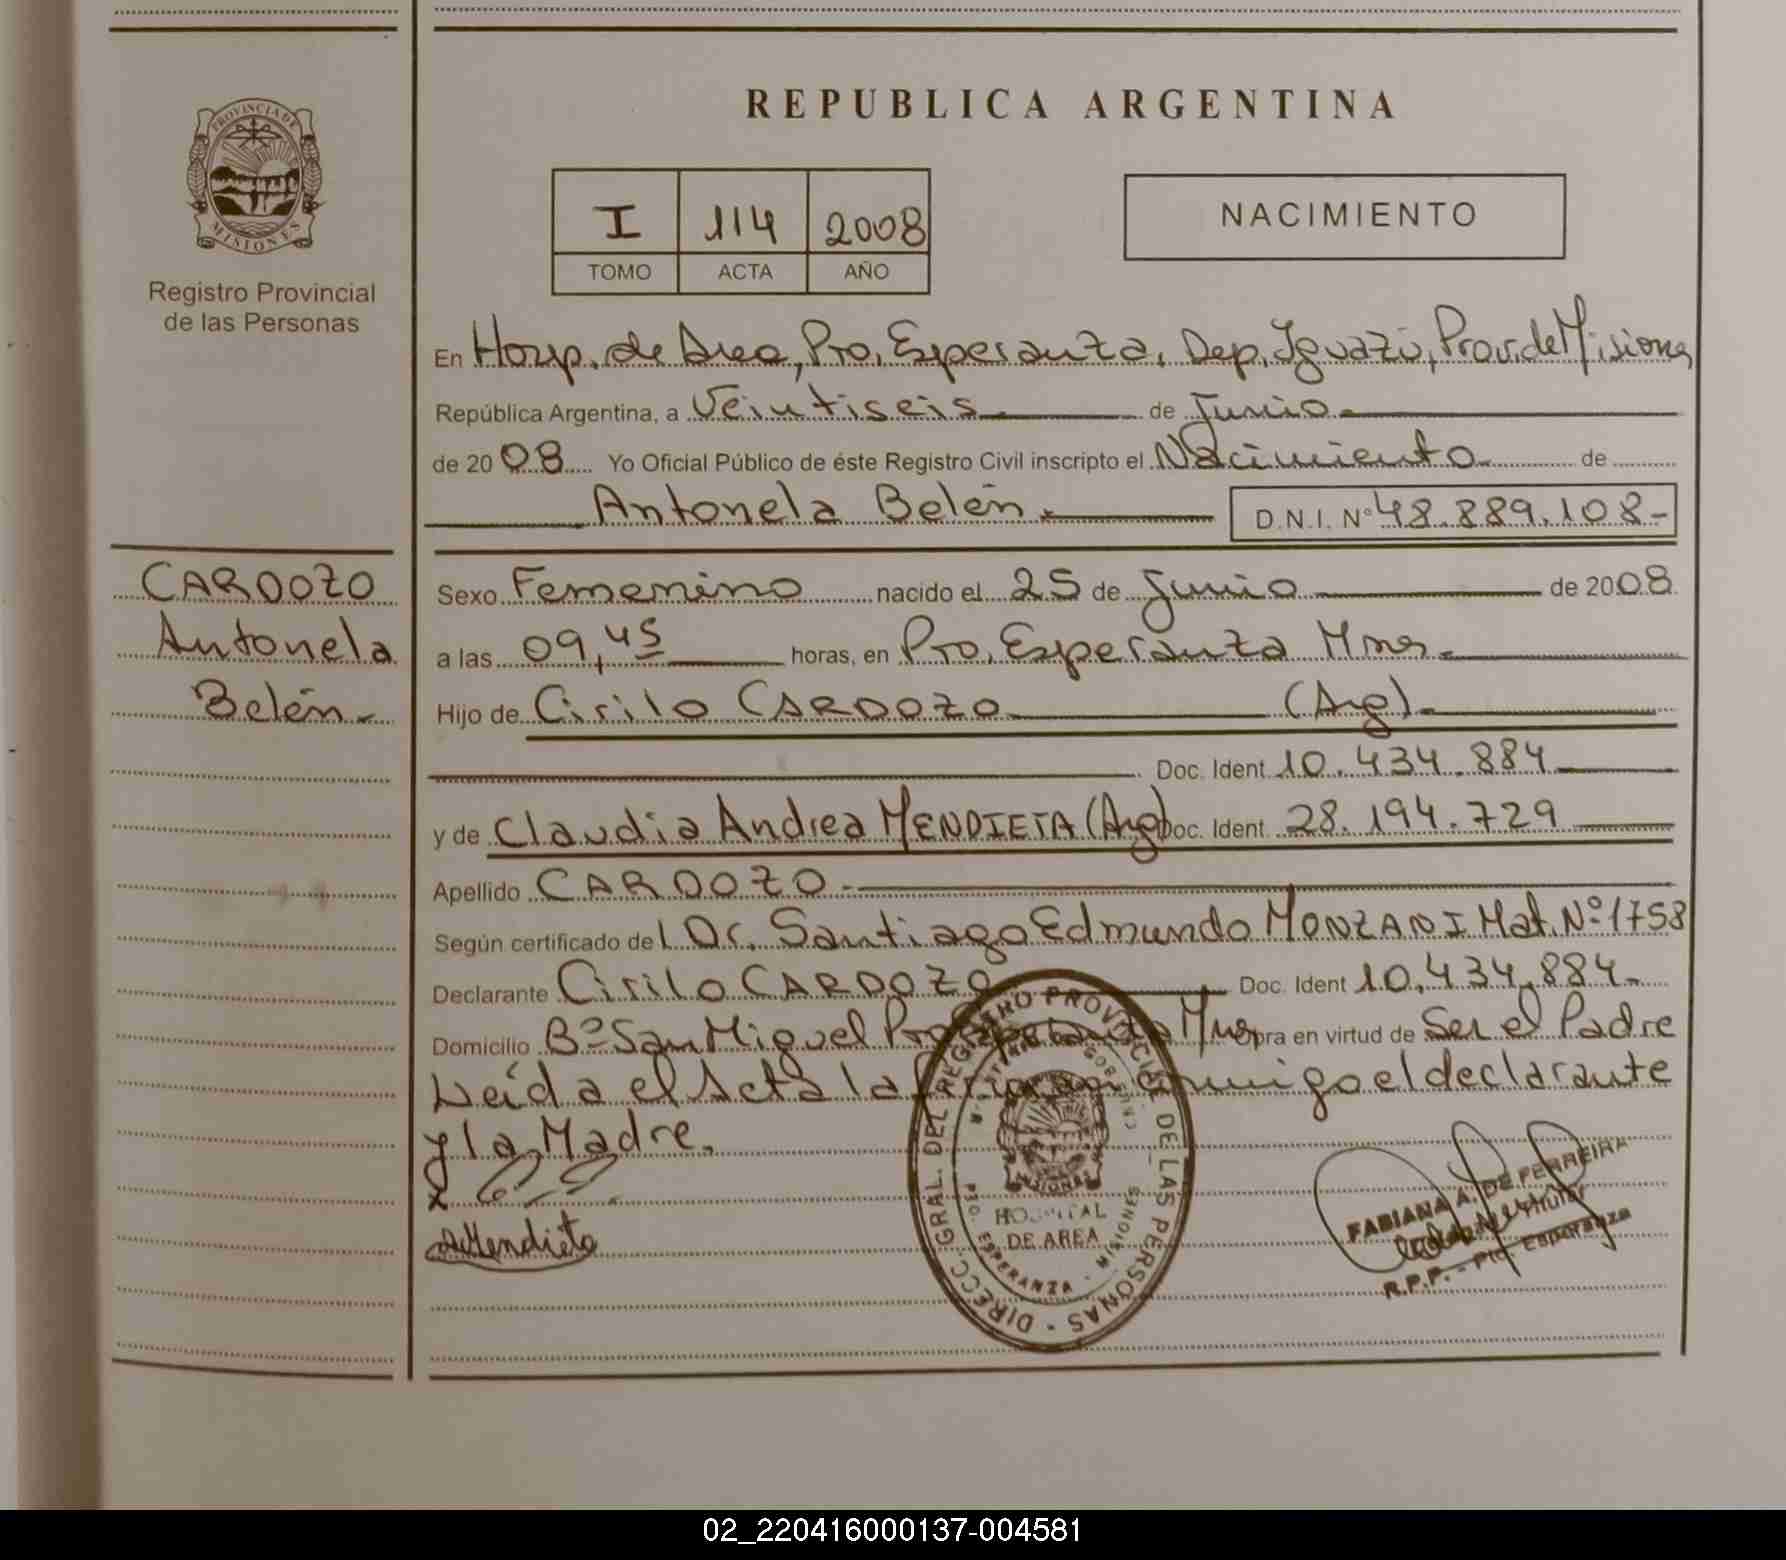 PROVINCIA DE
MISIONES
Registro Provincial
de las Personas
REPUBLICA ARGENTINA
I 114 2008
TOMO ACTA AÑO
NACIMIENTO
En Hosp. de Area, Pto. Esperanza, Dep. Iguazú, Prov. de Misiones
República Argentina, a Veintiseis de Junio
de 2008 Yo Oficial Público de éste Registro Civil inscripto el Nacimiento de
Antonela Belén. D.N.I. Nº 48.889.108-
CARDOZO
Antonela
Belén
Sexo Femenino nacido el 25 de Junio de 2008
a las 09,45 horas, en Pto. Esperanza Mnes.
Hijo de Cirilo CARDOZO (Arg).
Doc. Ident 10.434.884
y de Claudia Andrea MENDIETA (Arg) Doc. Ident 28.194.729
Apellido CARDOZO
Según certificado del Dr. Santiago Edmundo MONZANI Mat. Nº 1758
Declarante Cirilo CARDOZO Doc. Ident 10.434.884-
Domicilio Bº San Miguel Pto Esperanza Mnes obra en virtud de Ser el Padre
Leída el Acta la firman conmigo el declarante
y la Madre.
x
Mendieta
DIRECC. GRAL. DEL REGISTRO PROVINCIAL DE LAS PERSONAS
MINISTERIO DE GOBIERNO
MISIONES
HOSPITAL
DE AREA
PTO. ESPERANZA - MISIONES
FABIANA A. DE FERREIRA
R.P.P. - Pto. Esperanza
02_220416000137-004581